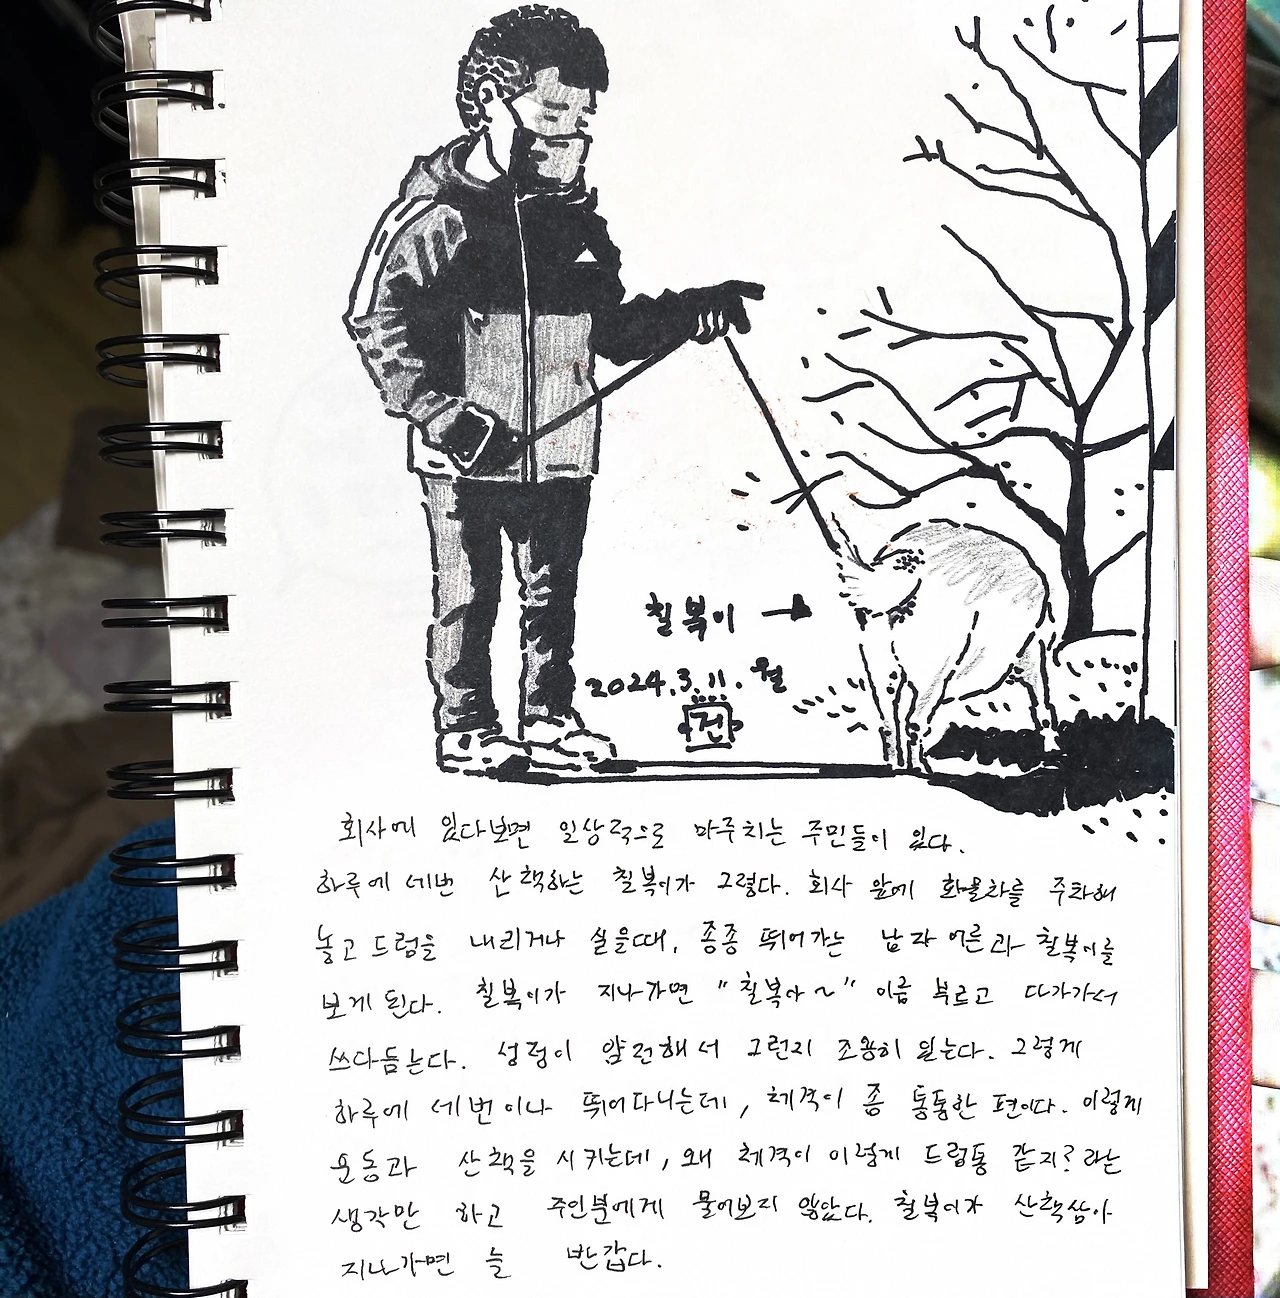 칠복이 →
2024.3.11.월
건
회사에 있다보면 일상적으로 마주치는 주민들이 있다.
하루에 세번 산책하는 칠복이가 그렇다. 회사 앞에 화물차를 주차해
놓고 드럼을 내리거나 실을때, 종종 뛰어가는 남자어른과 칠복이를
보게 된다. 칠복이가 지나가면 "칠복아~" 이름 부르고 다가가서
쓰다듬는다. 성정이 얌전해서 그런지 조용히 있는다. 그렇게
하루에 세번이나 뛰어다니는데, 체격이 좀 통통한 편이다. 이렇게
운동과 산책을 시키는데, 왜 체격이 이렇게 드럼통 같지? 라는
생각만 하고 주인분에게 물어보지 않았다. 칠복이가 산책삼아
지나가면 늘 반갑다.